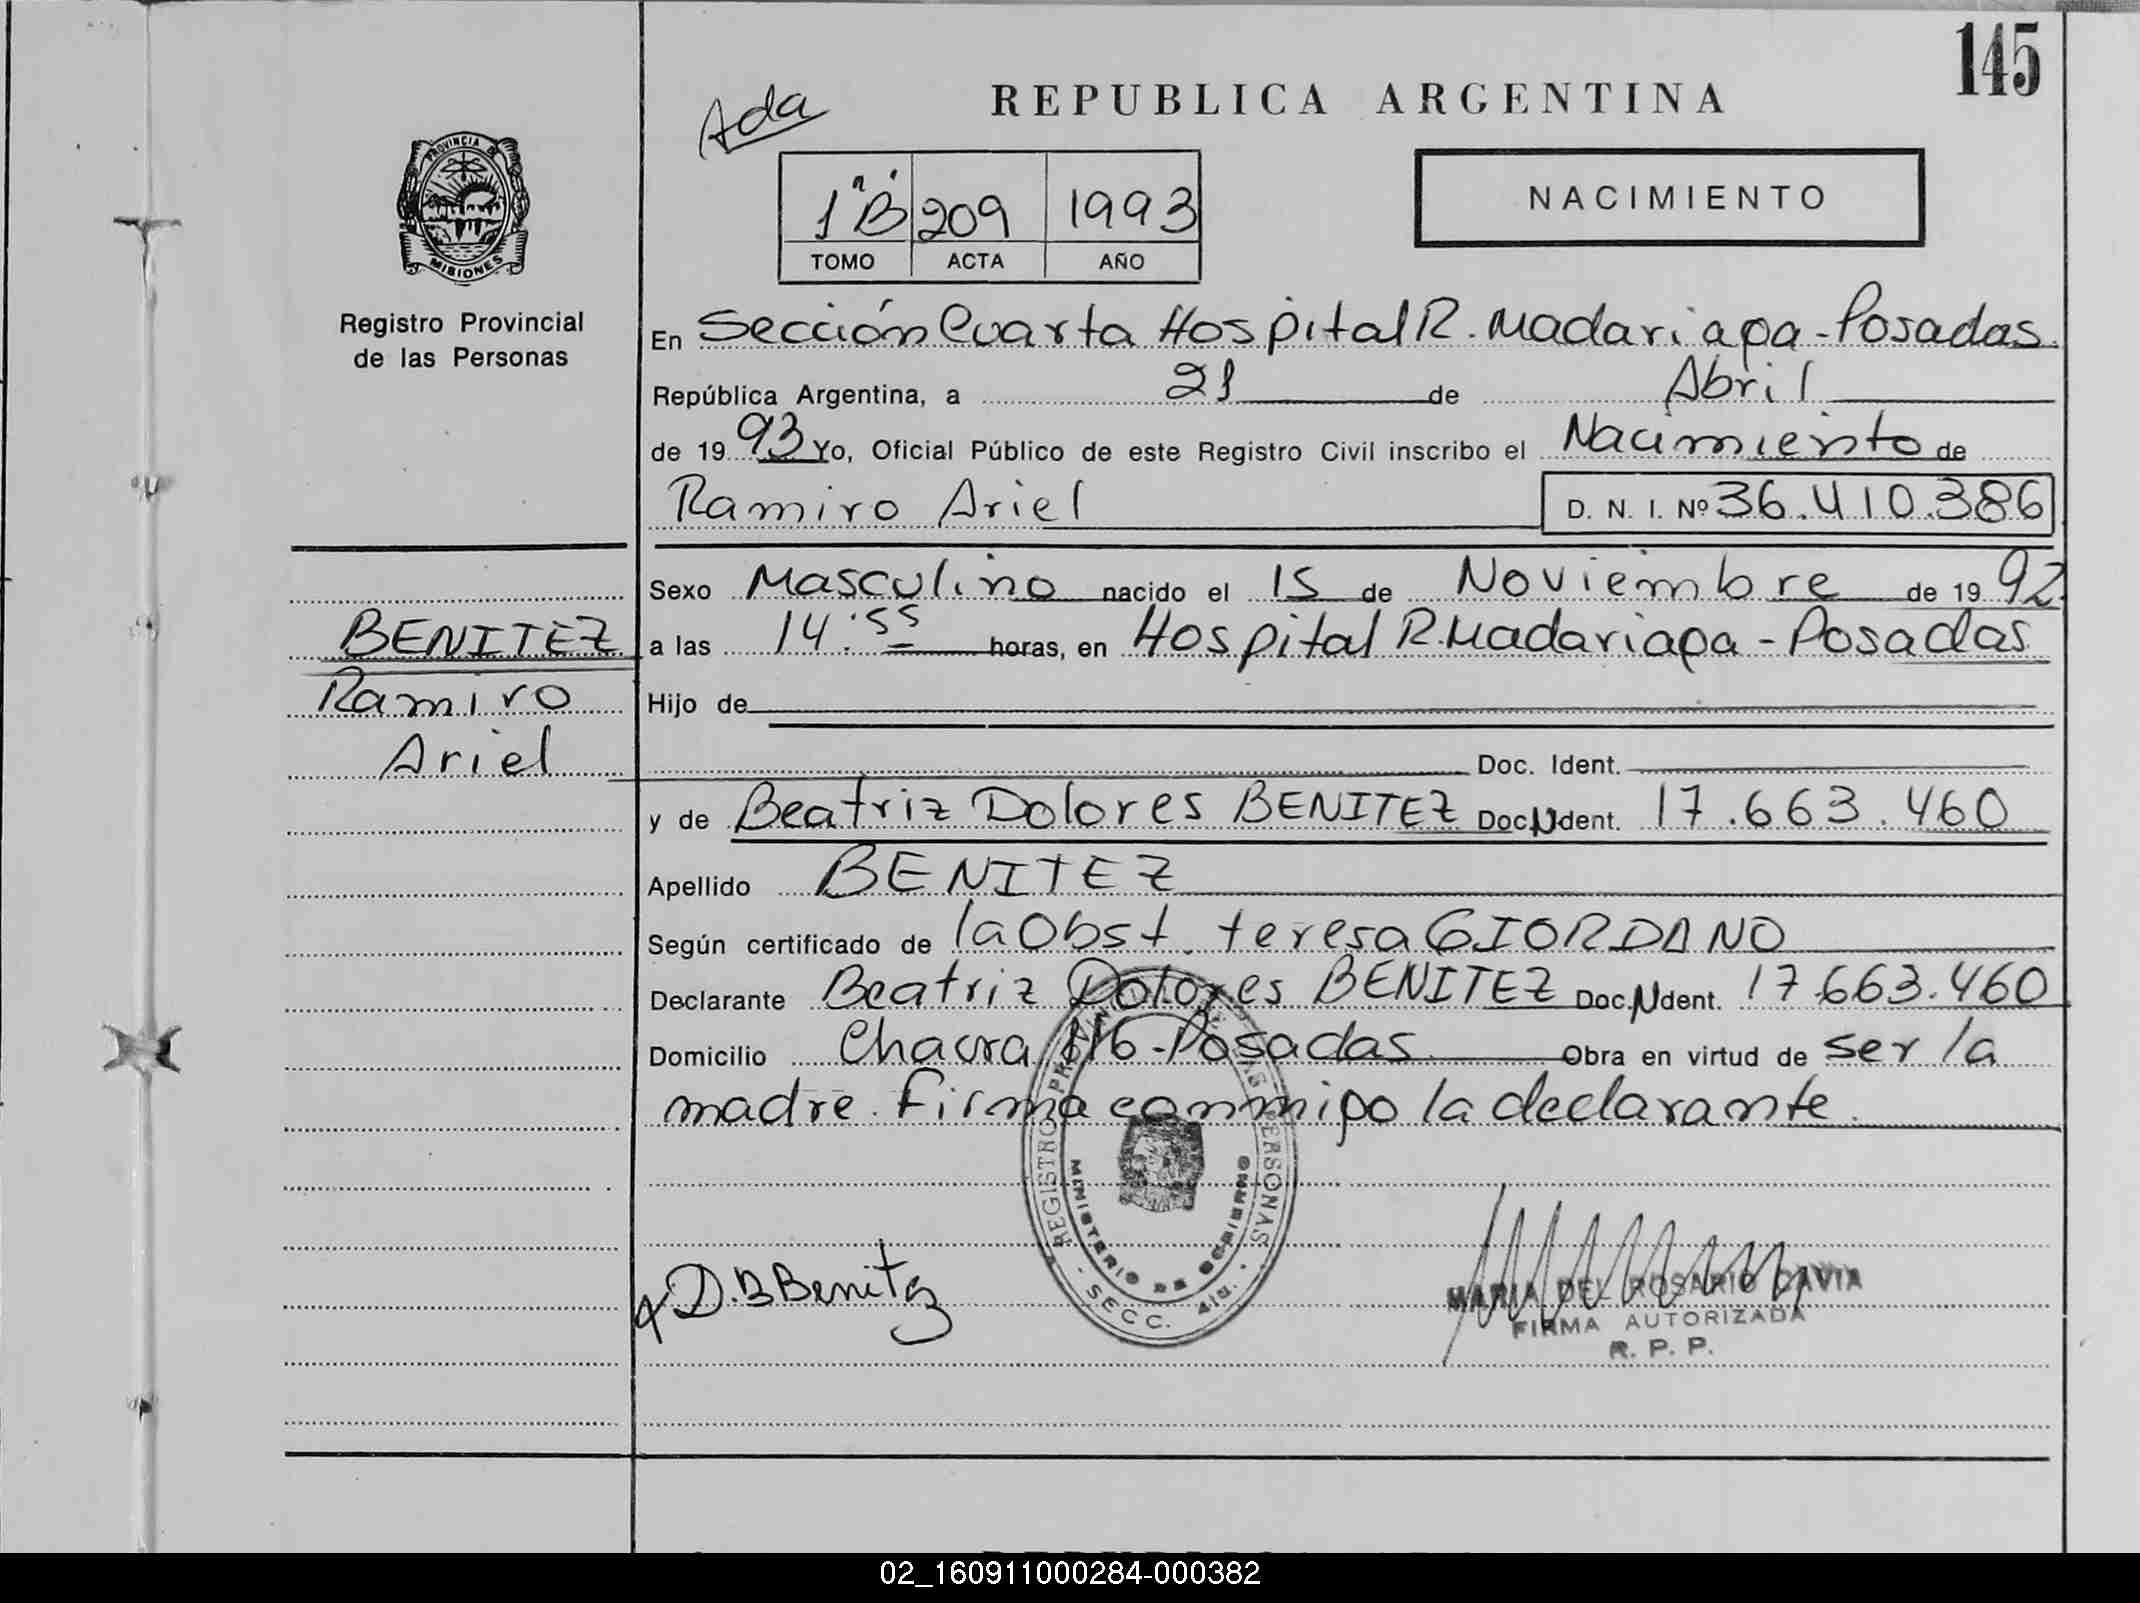 145
Ada
REPUBLICA ARGENTINA
PROVINCIA DE
MISIONES
Registro Provincial
de las Personas
1º B 209 1993
TOMO ACTA AÑO
NACIMIENTO
En Sección Cuarta Hospital R. Madariaga - Posadas.
República Argentina, a 21 de Abril
de 1993 Yo, Oficial Público de este Registro Civil inscribo el Nacimiento de
Ramiro Ariel D. N. I. Nº 36.410.386
Sexo Masculino nacido el 15 de Noviembre de 1992
BENITEZ
a las 14:55 horas, en Hospital R. Madariaga - Posadas
Ramiro
Hijo de
Ariel
Doc. Ident.
y de Beatriz Dolores BENITEZ Doc. Ident. 17.663.460
Apellido BENITEZ
Según certificado de la Obst. teresa GIORDANO
Declarante Beatriz Dolores BENITEZ Doc. Ident. 17.663.460
Domicilio Chacra 116 - Posadas Obra en virtud de ser la
madre. Firma conmigo la declarante.
REGISTRO PERSONAS
MINISTERIO DE GOBIERNO
SECC. 4ta.
D.B Benitez
MARIA DEL ROSARIO CAVIA
FIRMA AUTORIZADA
R. P. P.
02_160911000284-000382